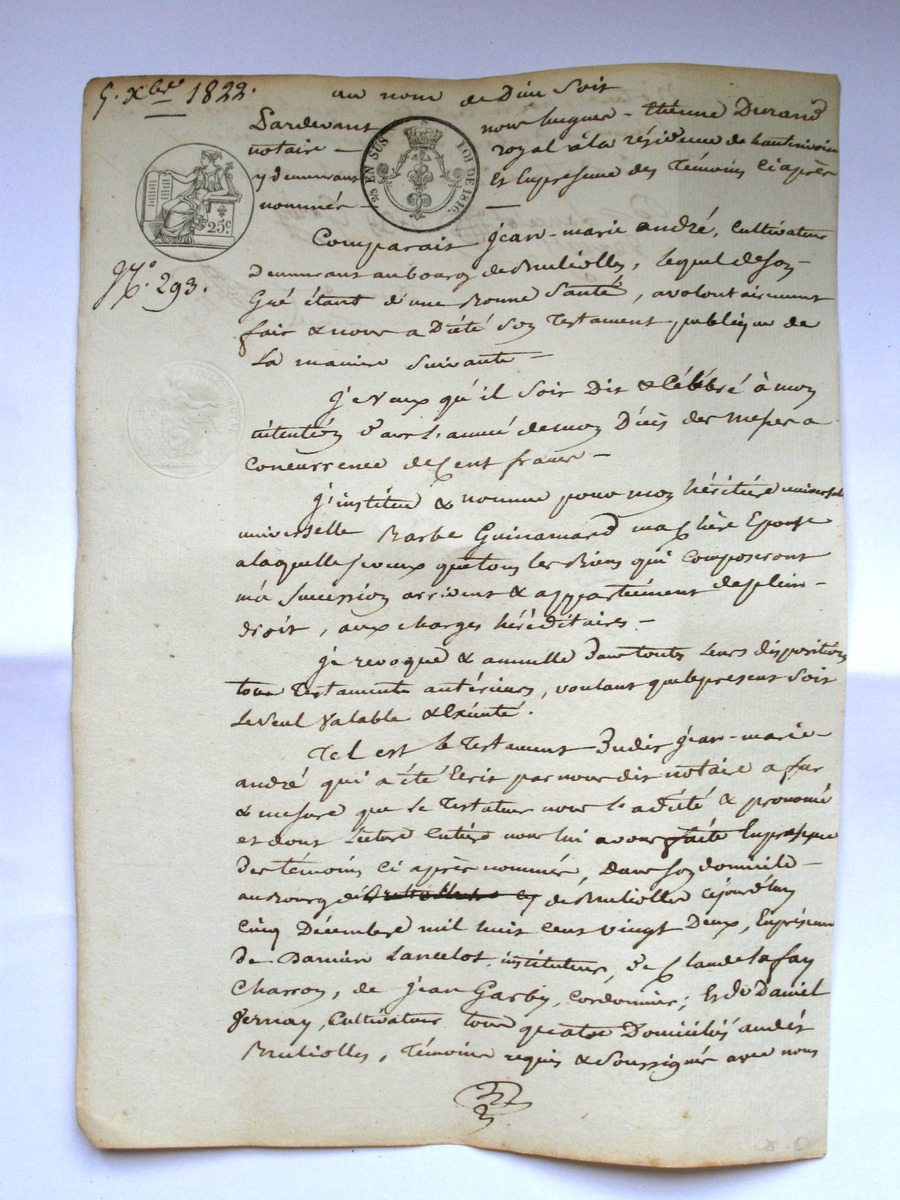 5. Xbre 1822.
au nom de Dieu soit
Pardevant nous hugues-Etienne Durand
notaire - royal à la résidence de hauterivoire
y demeurant Et En présence des Témoins Ci après
nommés -
25 EN SUS
LOI DE 1816.
25c
No. 293.
Comparait jean-marie andré, Cultivateur
Demeurant au bourg de Bruliolles, lequel de son
Gré étant d'une Bonne Santé, a volontairement
fait & nous a Dicté Son Testament publique de
La maniere Suivante -
Je Veux qu'il soit Dit & Célébré à mon
intention dans L'année de mon Décès des messes a
Concurrence de Cent francs -
J'institue & nomme pour mon héritière universel
universelle Barbe Guinamard ma Chère Epouse
a laquelle je veux que tous les Biens qui Composeront
ma succession arrivent & appartiennent de plein
droit, aux charges héréditaires -
je revoque & annulle dans toutes leurs dispositions
tous Testaments antérieurs, voulant que le present soit
Le seul Valable & Exécuté.
Tel est le Testament dudit jean-marie
andré qui a été Ecrit par nous dit notaire a fur
& mesure que le Testateur nous l'a dicté & prononcé
et dont lecture Entière nous lui avons faite En présence
des témoins Ci après nommés, Dans son domicile
au Bourg de Brulliolles Cejourd'huy
Cinq Décembre mil huit Cent vingt Deux, En présence
de Lancelot, instituteur, de Claude Lafay
Charron, de jean Garby, Cordonnier; Et de Daniel
jernay, Cultivateur tous quatre Domiciliés audit
Brulliolles, Témoins requis & soussignés avec nous